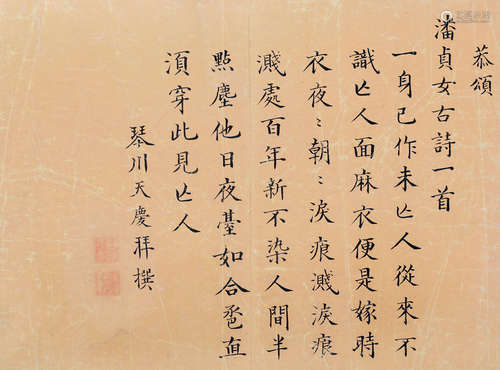 恭頌
潘貞女古詩一首
一身已作未亾人從來不
識亾人面麻衣便是嫁時
衣夜〻朝〻淚痕濺淚痕
濺處百年新不染人間半
點塵他日夜臺如合卺直
須穿此見亾人
琴川天慶拜撰